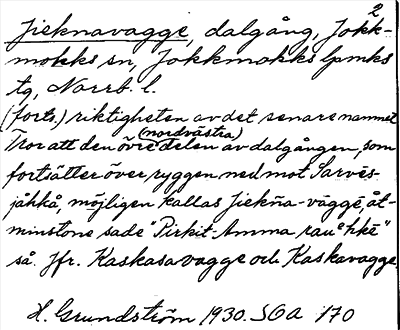 2
Jieknavagge, dalgång, Jokk-
mokks sn, Jokkmokks lpmks
tg, Norrb. l.
(forts.) riktigheten av det senare namnet
(nordvästra)
Tror att den övre delen av dalgången, som
fortsätter över ryggen ned mot Sarvēs-
jåhkå, möjligen kallas Jiekña-vággē, åt-
minstone sade "Pirkit-Amma
så. Jfr. Kaskasavagge och Kaskavagge.
H. Grundström 1930. SOA 170